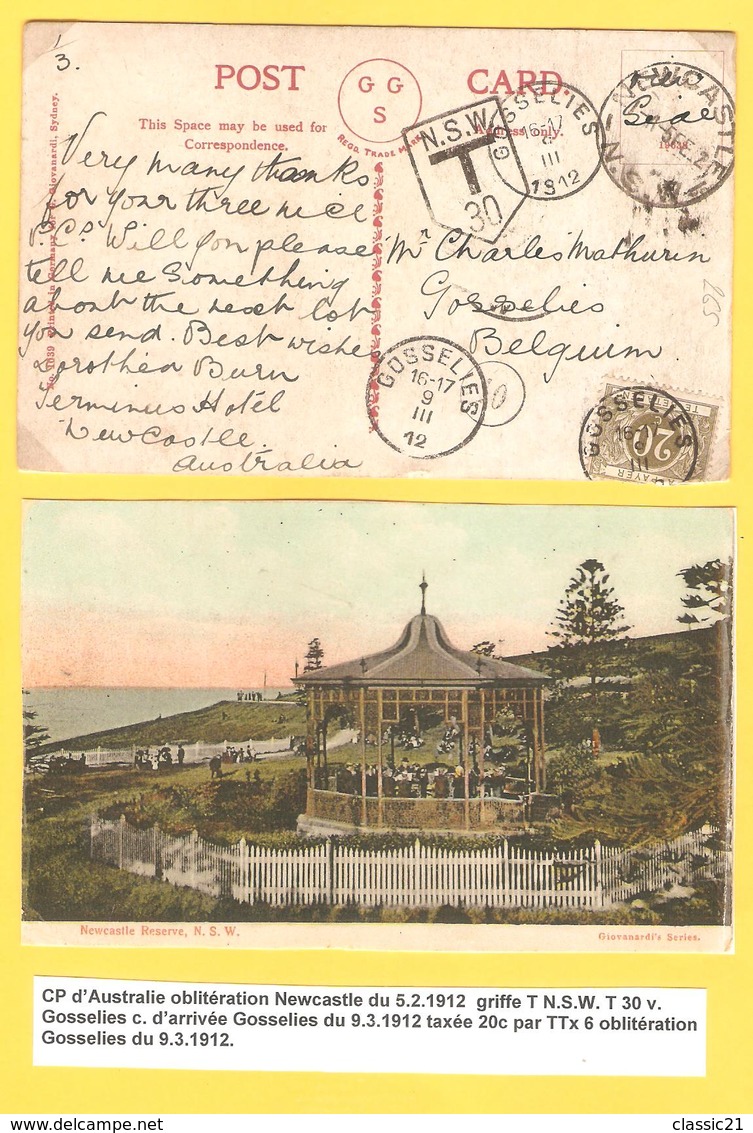 3.
POST CARD.
G G
S
REGD. TRADE MARK
This Space may be used for
Correspondence.
Address only.
Giovanardi, Sydney.
Very many thanks
for your three nice
P.C's. Will you please
tell me something
about the next lot
you send. Best wishes
Dorothea Burn
Terminus Hotel
Newcastle.
Australia
N.S.W.
T
30
GOSSELIES
16-17
9
III
1912
NEWCASTLE
N.S.W
View
Side
Mr Charles Mathurin
Gosselies
Belguim.
265
GOSSELIES
16-17
9
III
12
GOSSELIES
16-17
III
20
Newcastle Reserve, N. S. W.
Giovanardi's Series.
CP d'Australie oblitération Newcastle du 5.2.1912 griffe T N.S.W. T 30 v.
Gosselies c. d'arrivée Gosselies du 9.3.1912 taxée 20c par TTx 6 oblitération
Gosselies du 9.3.1912.
delcampe.net
classic21